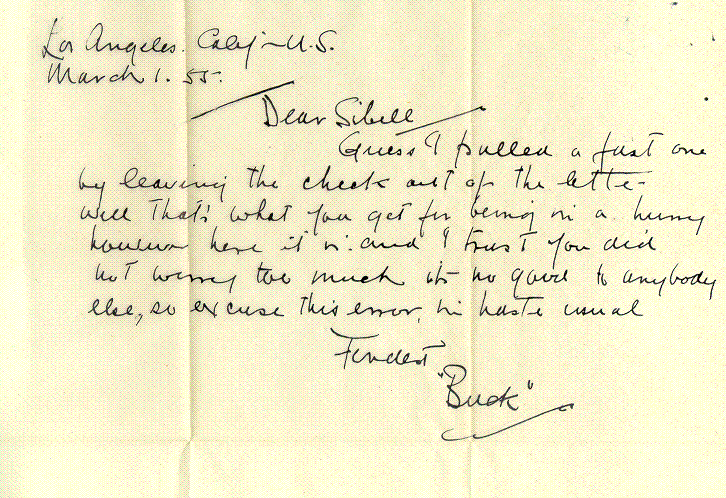 Los Angeles. Calif - U.S.
March 1. 55.
Dear Sibell
Guess I pulled a fast one
by leaving the check out of the lette-
well that's what you get for being in a hurry
however here it is. and I trust you did
not worry too much its no good to anybody
else, so excuse this error, in haste usual
Fondest
"Buck"